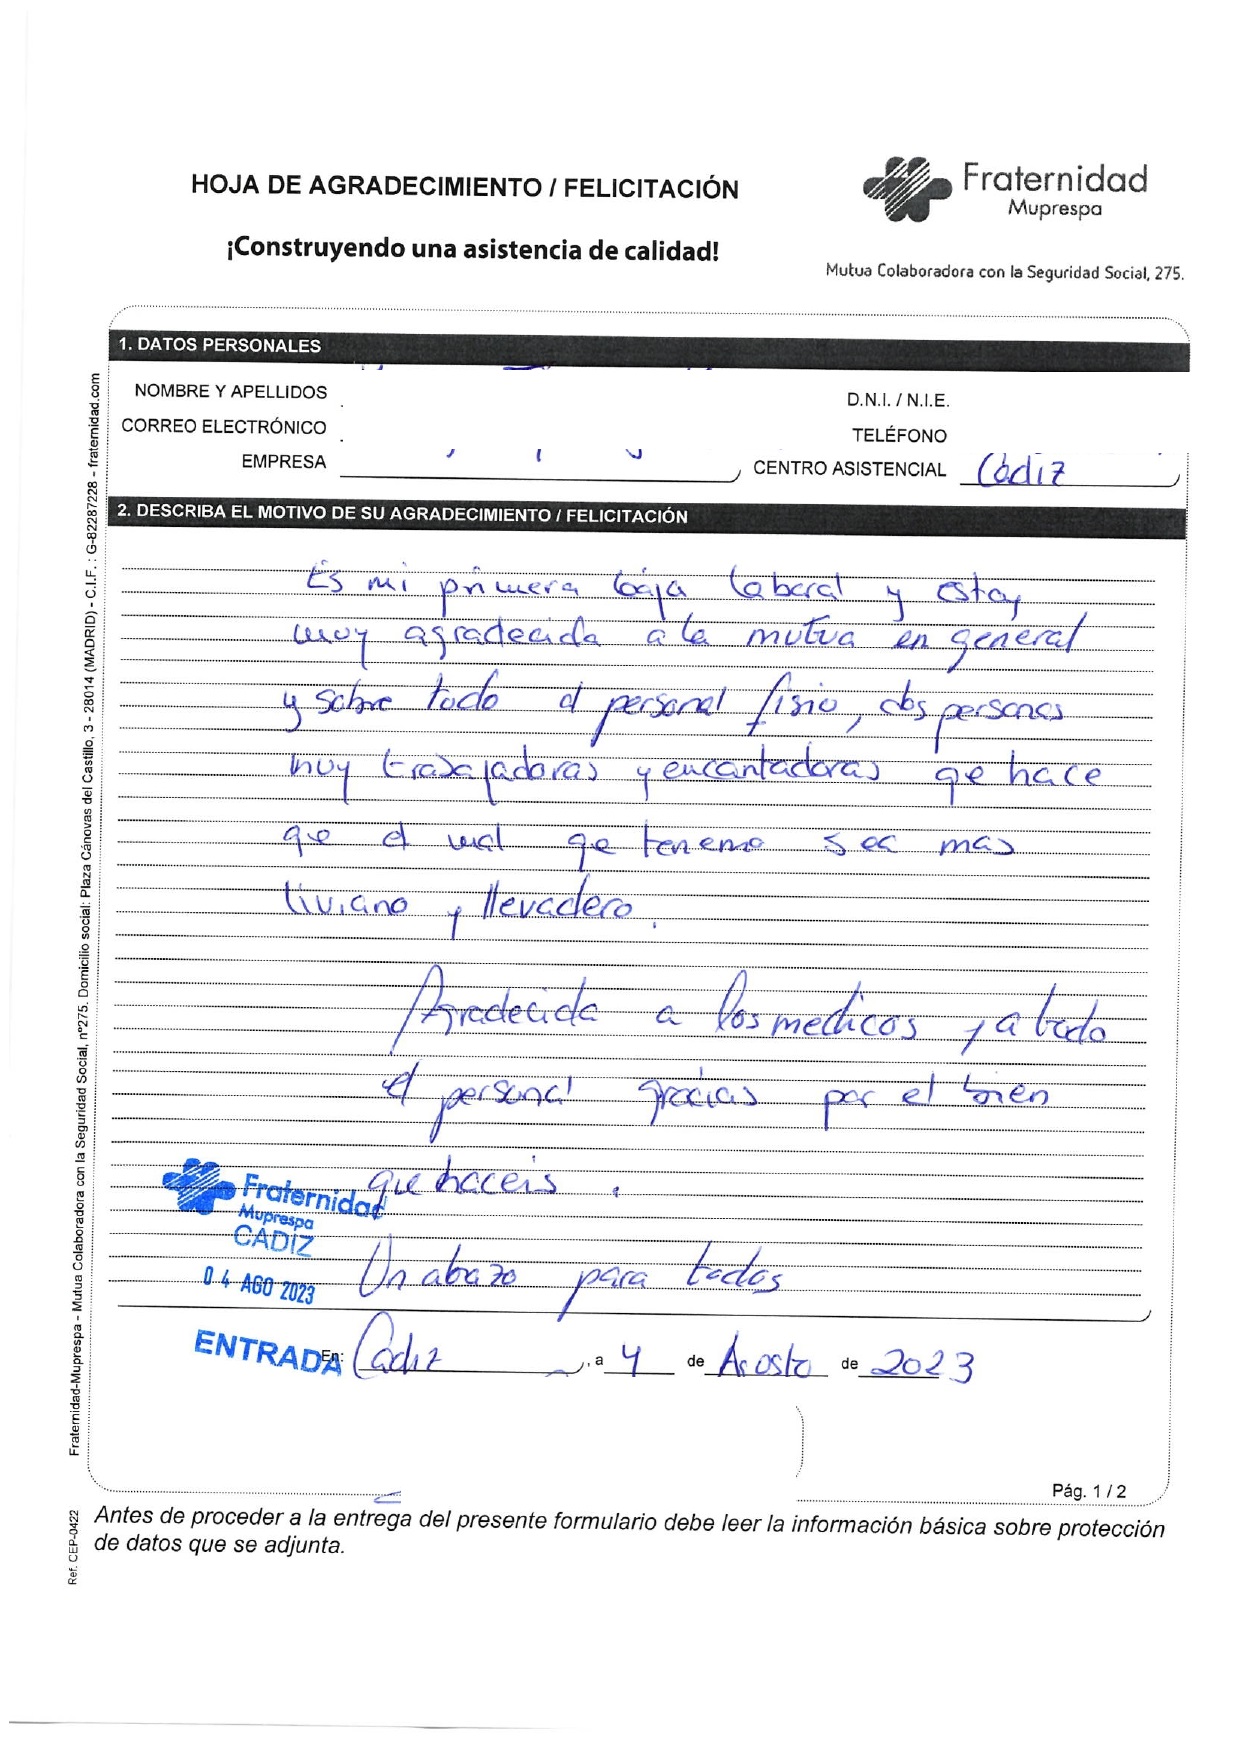 HOJA DE AGRADECIMIENTO / FELICITACIÓN
¡Construyendo una asistencia de calidad!
Fraternidad
Muprespa
Mutua Colaboradora con la Seguridad Social, 275.
1. DATOS PERSONALES
NOMBRE Y APELLIDOS
D.N.I. / N.I.E.
CORREO ELECTRÓNICO
TELÉFONO
EMPRESA
CENTRO ASISTENCIAL Cádiz
2. DESCRIBA EL MOTIVO DE SU AGRADECIMIENTO / FELICITACIÓN
Es mi primera baja laboral y estoy
muy agradecida a la mutua en general
y sobre todo el personal fisio, dos personas
muy trabajadoras y encantadoras qe hace
que el mal qe tenemo sea mas
liviano y llevadero.
Agradecida a los medicos y a todo
el personal gracias por el bien
que haceis.
Un abazo para todos
Fraternidad
Muprespa
CADIZ
04 AGO 2023
ENTRADA
En: Cadiz, a 4 de Agosto de 2023
Pág. 1 / 2
Antes de proceder a la entrega del presente formulario debe leer la información básica sobre protección
de datos que se adjunta.
Fraternidad-Muprespa - Mutua Colaboradora con la Seguridad Social, nº275. Domicilio social: Plaza Cánovas del Castillo, 3 - 28014 (MADRID) - C.I.F. : G-82287228 - fraternidad.com
Ref. CEP-0422